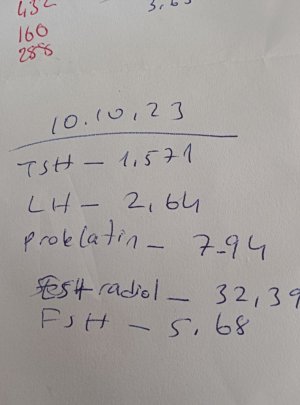 432
3,63
160
288
10.10,23
TSH - 1,571
LH - 2,64
Proklatin - 7.94
Estradiol - 32,39
FSH - 5,68